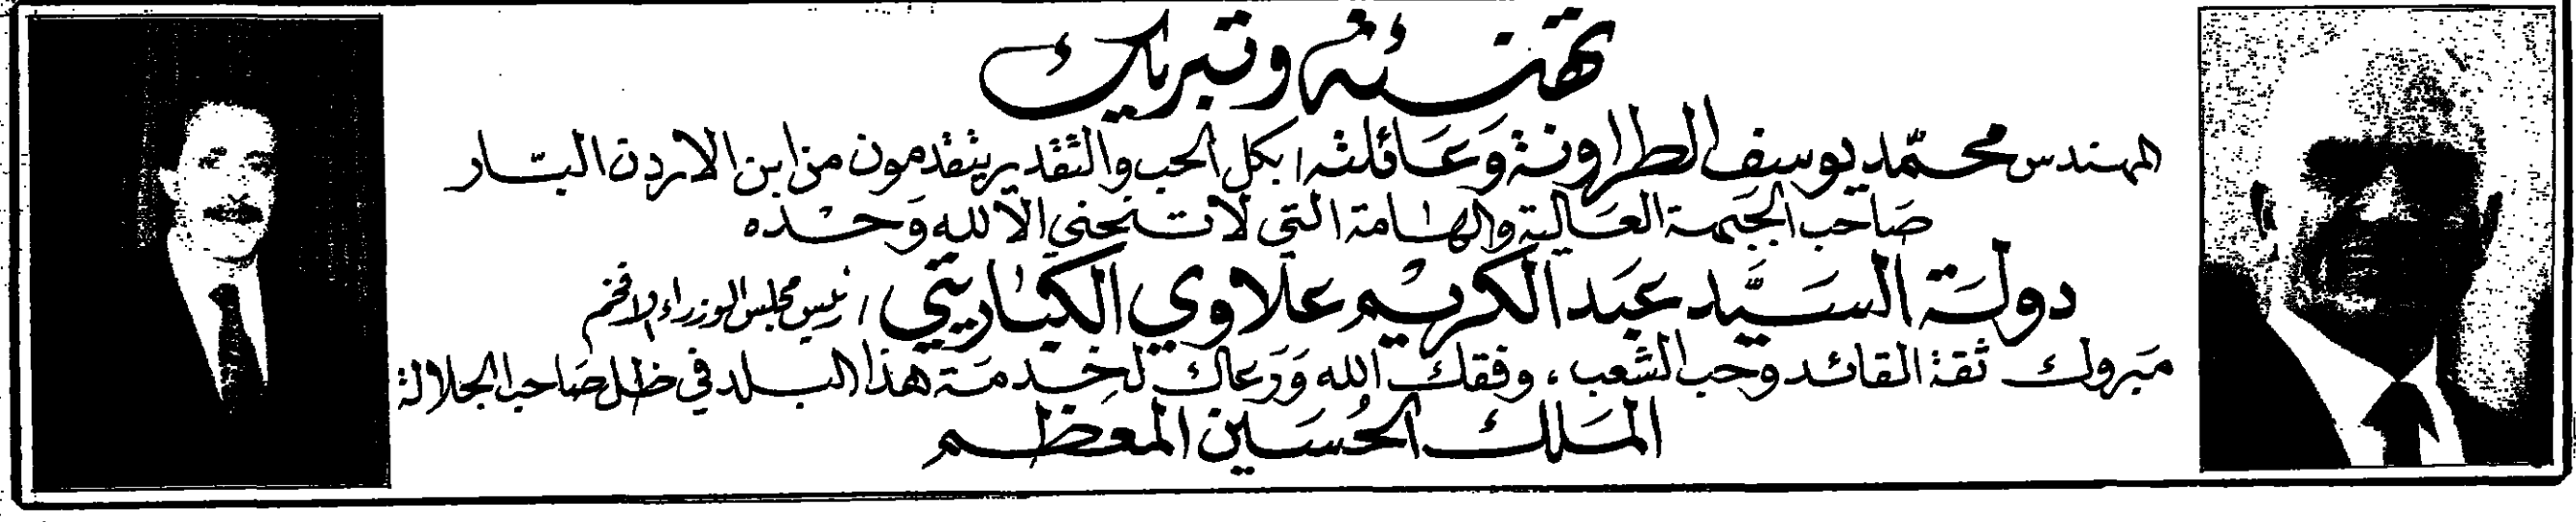 تهنئة وتبريك
المهندس محمد يوسف الطراونة وعائلته / بكل الحب والتقدير يتقدمون من ابن الاردن البار
صاحب الجبهة العالية والهامة التي لا تنحني الا لله وحده
دولة السيد عبد الكريم علاوي الكباريتي / رئيس مجلس الوزراء الافخم
مبروك ثقة القائد وحب الشعب ، وفقك الله ورعاك لخدمة هذا البلد في ظل صاحب الجلالة
الملك الحسين المعظم